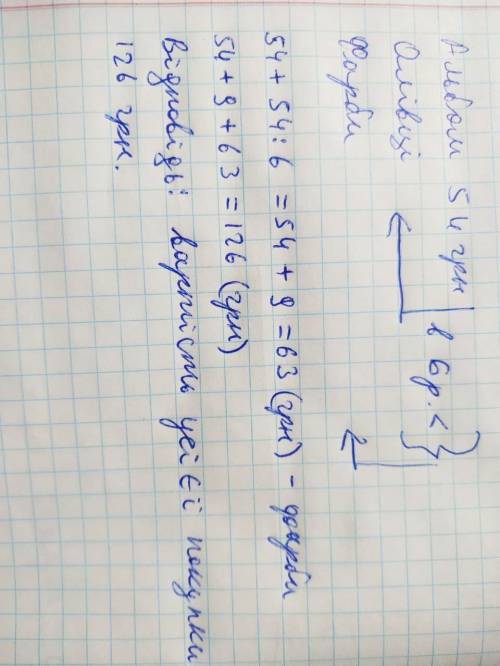 Альбом 54 грн
Олівці в 6 р. <
Фарби
54 + 54 : 6 = 54 + 9 = 63 (грн) - фарби
54 + 9 + 63 = 126 (грн)
Відповідь: вартість цієї покупки
126 грн.